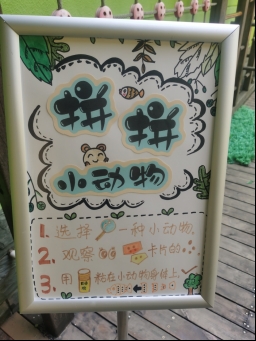 拼拼
小动物
1. 选择一种小动物.
2. 观察卡片的
3. 用粘在小动物身体上